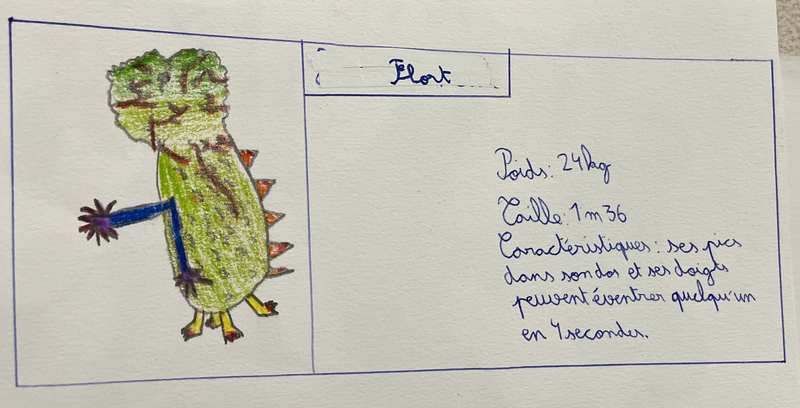 Flort
Poids: 24kg
Taille: 1m36
Caractéristiques: ses pics
dans son dos et ses doigts
peuvent éventrer quelqu'un
en 4 secondes.